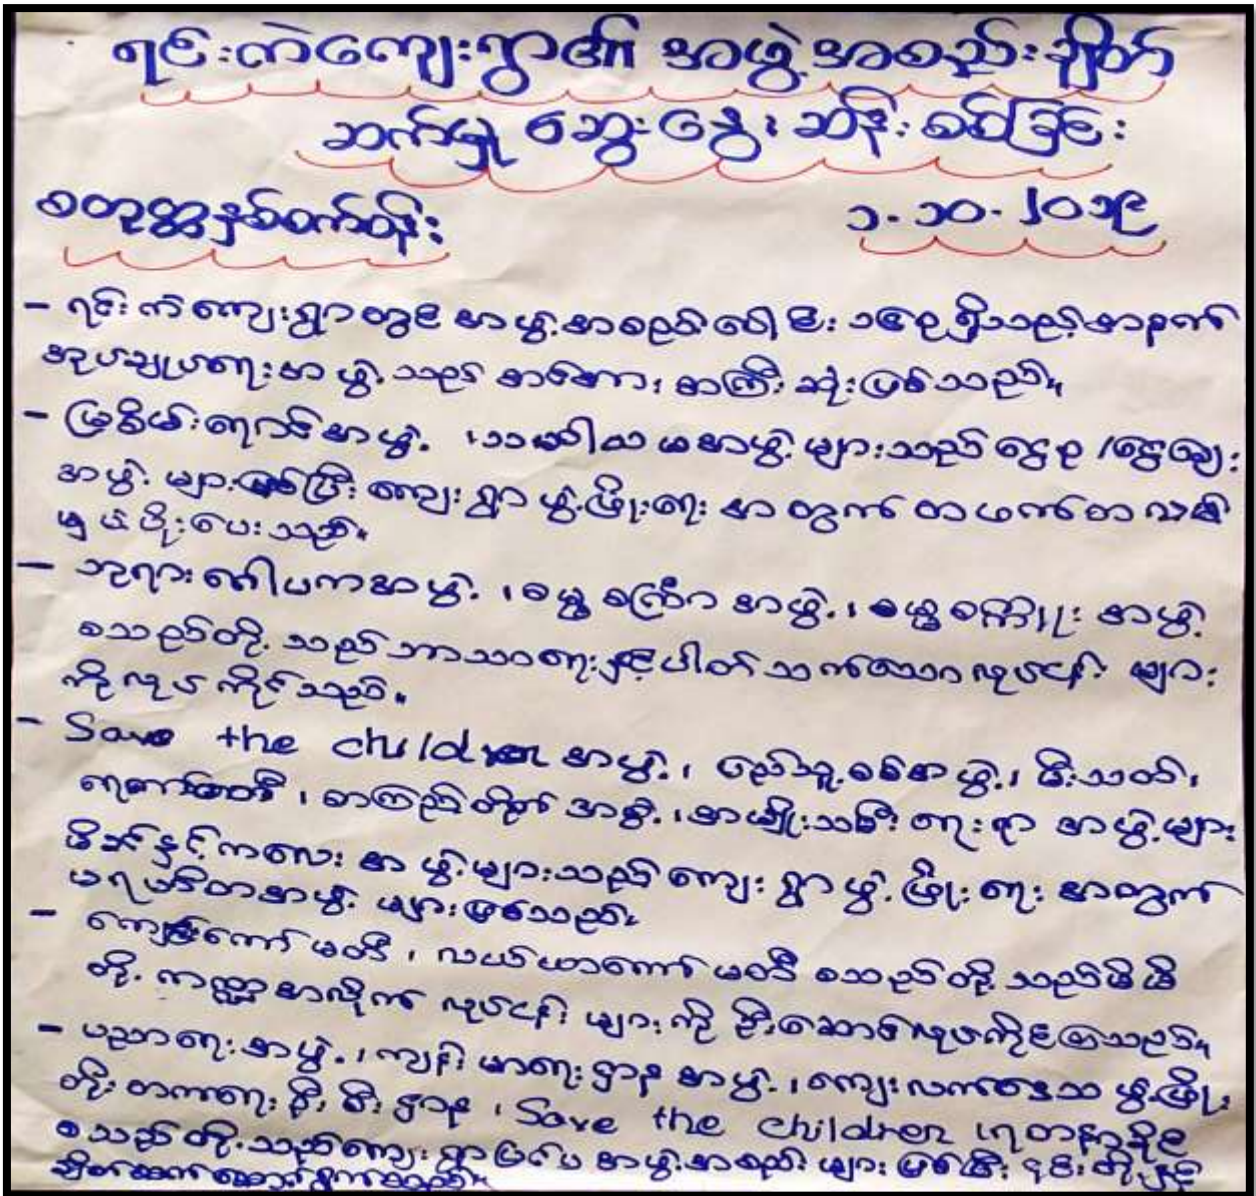 ရင်းကဲကျေးရွာ၏ အဖွဲ့အစည်းချိတ်
ဆက်မှု ဆွေးနွေး၊ ဆန်းစစ်ခြင်း
စတုတ္ထနှစ်စက်ဝန်း ၁-၁၀-၂၀၁၉
- ရင်းကဲကျေးရွာတွင် အဖွဲ့အစည်းပေါင်း ၁၄ ခုရှိသည့်အနက်
အုပ်ချုပ်ရေးအဖွဲ့သည် အဓိက၊ အကြီးဆုံးဖြစ်သည်။
- မြစိမ်းရောင်အဖွဲ့ ၊ သဟါယအဖွဲ့များသည် ငွေစု / ငွေချေး
အဖွဲ့ များဖြစ်ပြီး ကျေးရွာဖွံ့ဖြိုးရေး အတွက် တဖက်တလမ်း
မှ ပံ့ပိုးပေးသည်။
- ဘုရား ဂေါပကအဖွဲ့ ၊ ဓမ္မစကြာ အဖွဲ့ ၊ အဖွဲ့
စသည်တို့သည် ဘာသာရေးနှင့်ပါတ်သက်သော လုပ်ငန်း များ
ကို လုပ်ကိုင်သည်။
- Save the children အဖွဲ့ ၊ ပြည်သူ့စစ်အဖွဲ့ ၊ မီးသတ်၊
ရေကော်မတီ ၊ စာကြည့်တိုက် အဖွဲ့ ၊ အမျိုးသမီး ရေးရာ အဖွဲ့များ
မိခင်နှင့် ကလေး အဖွဲ့များသည် ကျေးရွာဖွံ့ဖြိုးရေး အတွက်
မရှိမဖြစ် အဖွဲ့ များဖြစ်သည်။
- ကော်မတီ ၊ လယ်ယာကော်မတီ စသည်တို့သည် မိမိ
တို့ ကဏ္ဍအလိုက် လုပ်ငန်း များကို ဦးဆောင်လုပ်ကိုင်ကြသည်။
- ပညာရေးအဖွဲ့ ၊ ကျန်းမာရေးဌာန အဖွဲ့ ၊ ကျေးလက်ဒေသ ဖွံ့ဖြိုး
တိုးတက်ရေး ဦးစီးဌာန ၊ Save the children ၊
စသည်တို့သည် ကျေးရွာပြင်ပ အဖွဲ့အစည်း များ ဖြစ်ပြီး ၎င်းတို့နှင့်
ချိတ်ဆက်ဆောင်ရွက်သည်။